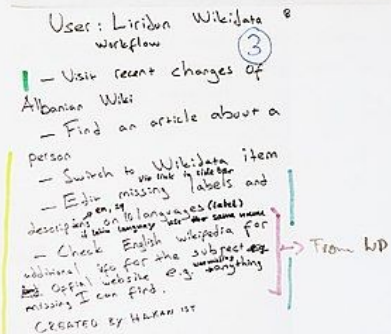 User: Liridon Wikidata
workflow
3
- Visit recent changes of
Albanian Wiki
- Find an article about a
person
- Switch to Wikidata item
via link in side bar
- Edit missing labels and
en, sq (label)
descriptions on 16 languages
if latin language use the same name
- Check English wikipedia for
additional info for the subject
Offical website e.g. anything
missing I can find.
From WP
CREATED BY HAKAN IST